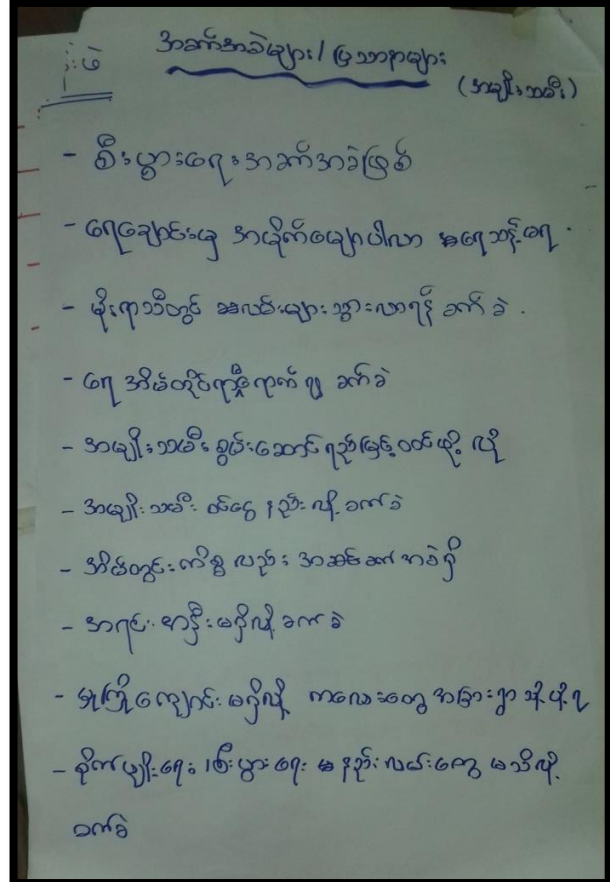 အခက်အခဲများ/ပြဿနာများ
(အမျိုးသမီး)
- စီးပွားရေးအခက်အခဲဖြစ်
- ရေချောင်းမှ အမိုက်မျောပါလာ ရေသန့်ရေ
- မိုးရာသီတွင် လမ်းများသွားလာရန် ခက်ခဲ .
- ရေ အိမ်တိုင်ရာရောက်ရ ခက်ခဲ
- အမျိုးသမီး စွမ်းဆောင်ရည်မြှင့်တင်ဖို့ လို
- အမျိုးသမီး ဝင်ငွေ နည်းလို့ ခက်ခဲ
- အိမ်တွင်းကိစ္စ လည်း အခက်အခဲရှိ
- အရင်းအနှီးမရှိလို့ ခက်ခဲ
- မူကြိုကျောင်းမရှိလို့ ကလေးတွေ အခြားရွာ ပို့ရ
- စိုက်ပျိုးရေး၊ စီးပွားရေး နည်းလမ်းတွေ မသိလို့
ခက်ခဲ